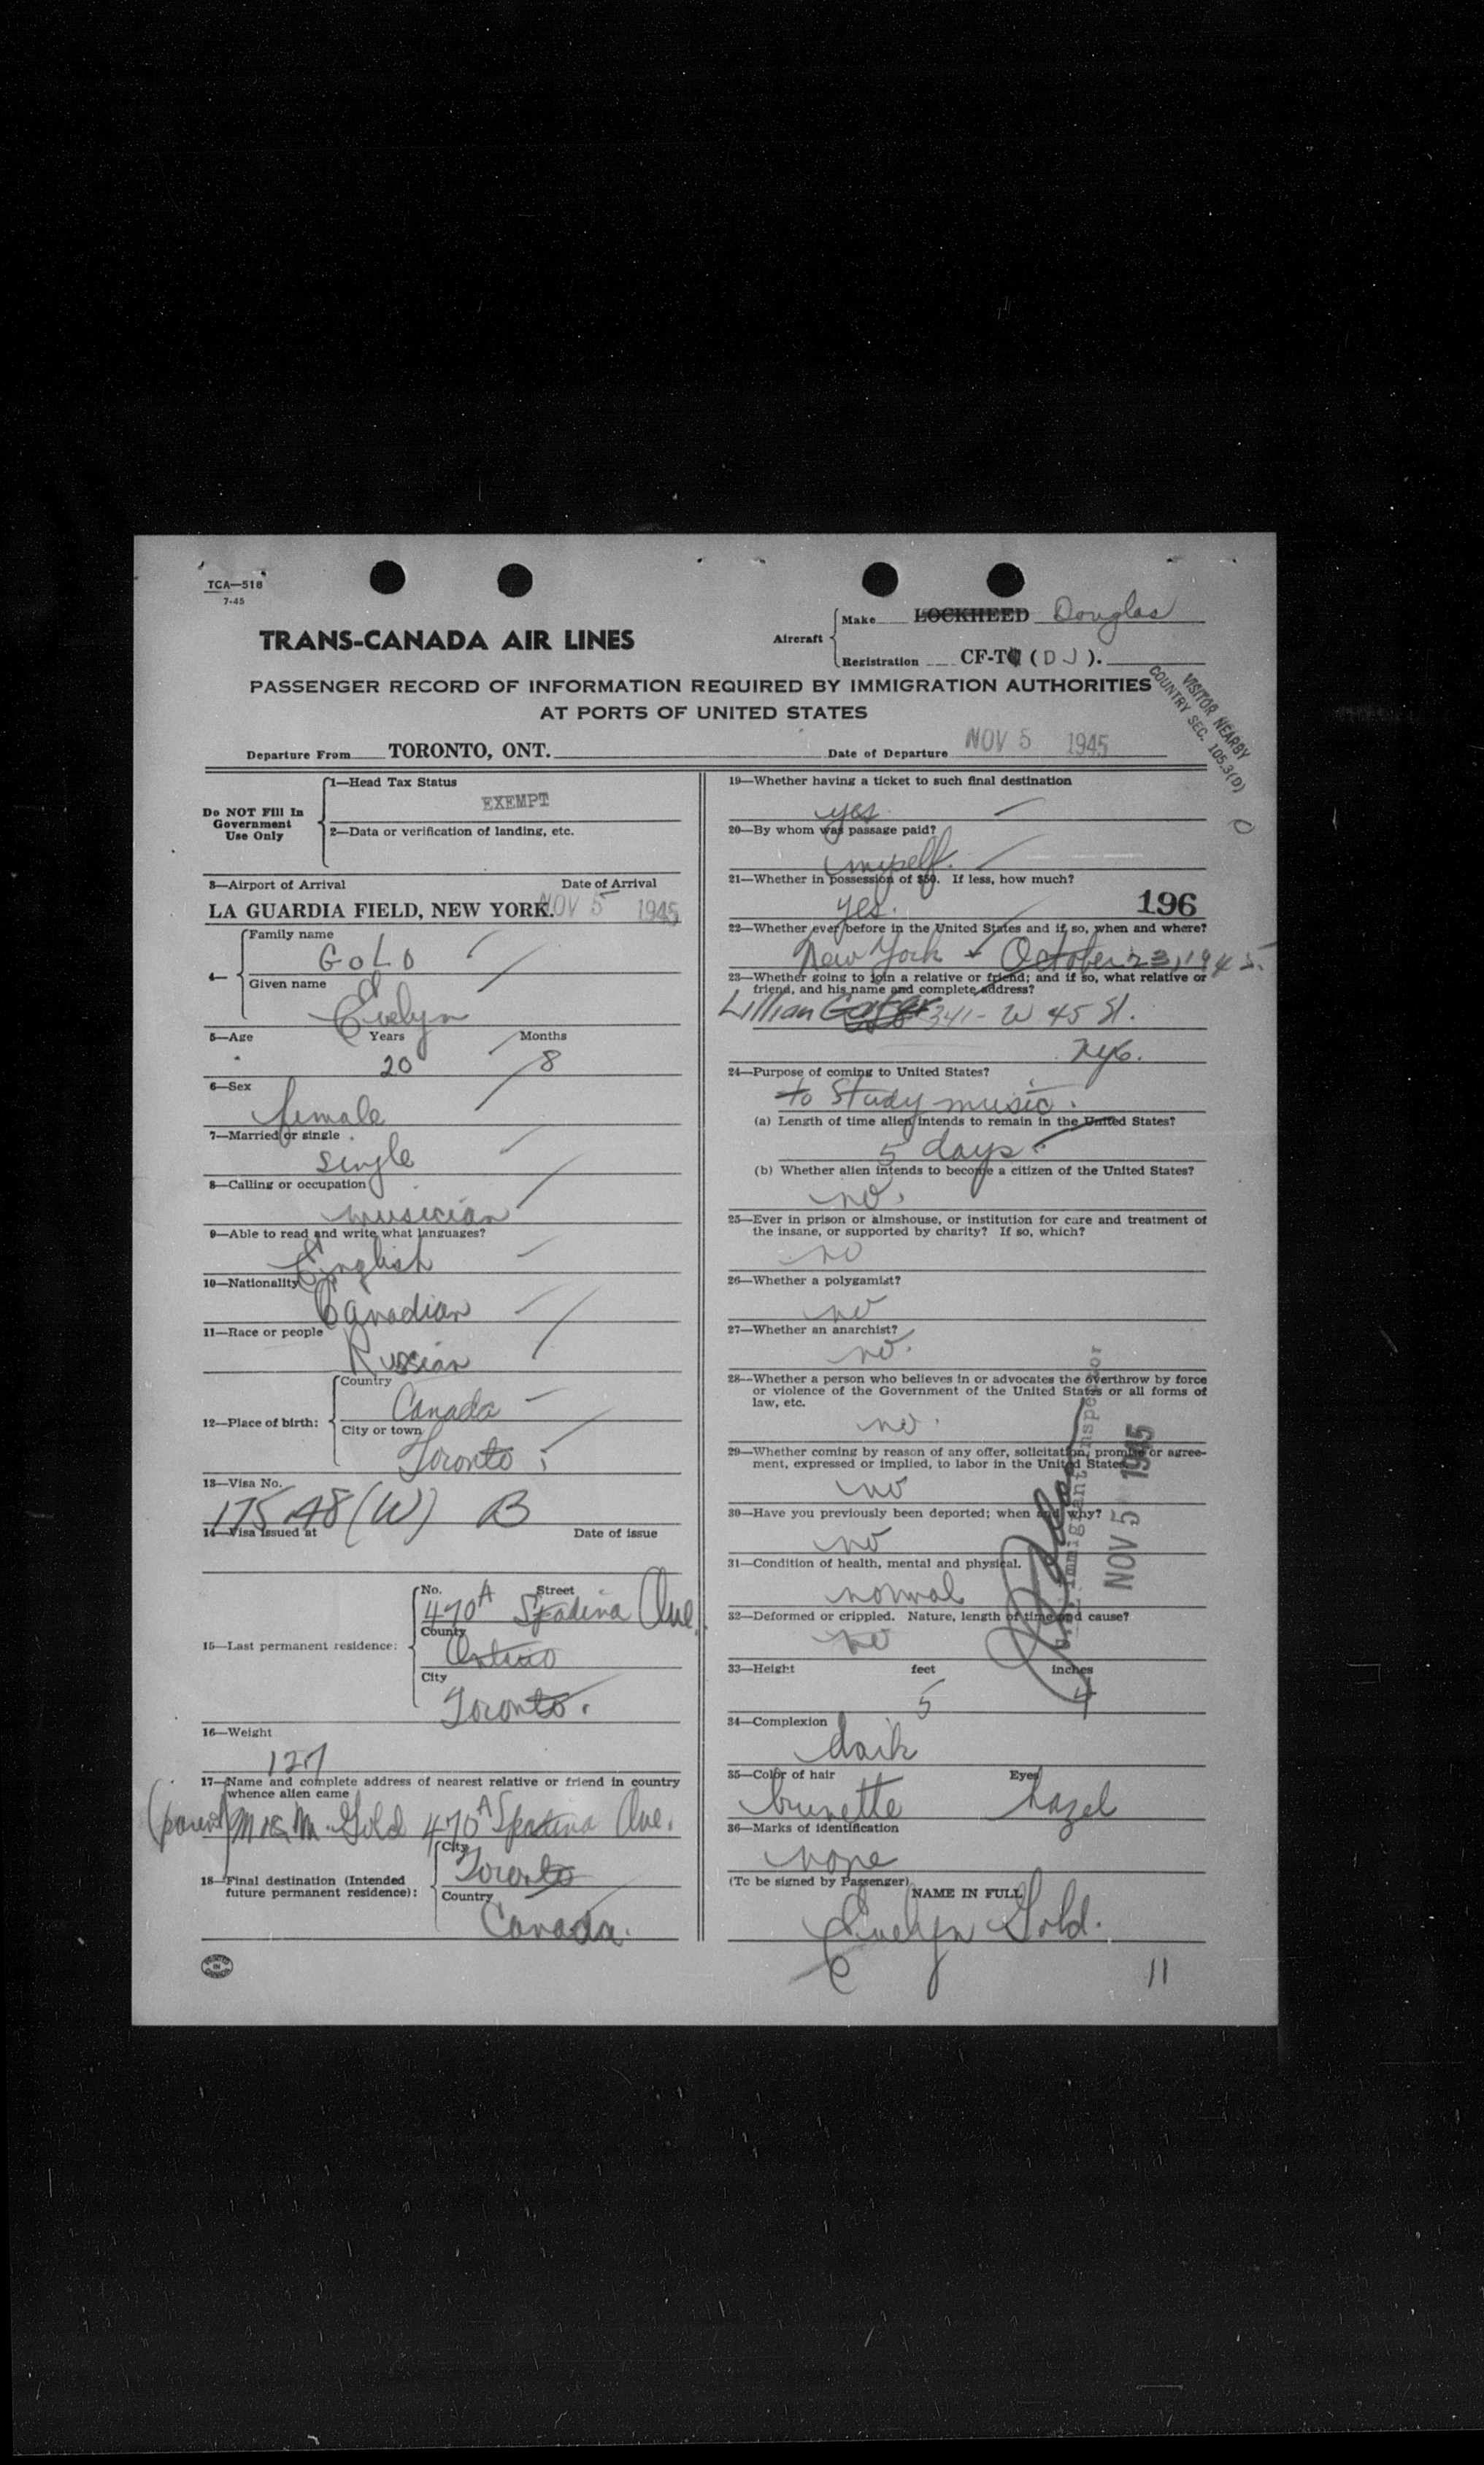 TCA—518
7-45
TRANS-CANADA AIR LINES
Aircraft
Make LOCKHEED Douglas
Registration CF-T (DJ).
PASSENGER RECORD OF INFORMATION REQUIRED BY IMMIGRATION AUTHORITIES
AT PORTS OF UNITED STATES
VISITOR NEARBY
COUNTRY SEC. 105.3(D)
Departure From TORONTO, ONT.
Date of Departure NOV 5 1945
Do NOT Fill In
Government
Use Only
1—Head Tax Status
EXEMPT
2—Data or verification of landing, etc.
3—Airport of Arrival Date of Arrival
LA GUARDIA FIELD, NEW YORK. NOV 5 1945
4—
Family name
GOLD
Given name
Evelyn
5—Age Years Months
20 8
6—Sex
female
7—Married or single
single
8—Calling or occupation
musician
9—Able to read and write what languages?
English
10—Nationality
Canadian
11—Race or people
Russian
12—Place of birth:
Country
Canada
City or town
Toronto
13—Visa No.
17548 (W) B
14—Visa issued at Date of issue
15—Last permanent residence:
No. Street
470A Spadina Ave.
County
Ontario
City
Toronto.
16—Weight
127
17—Name and complete address of nearest relative or friend in country
whence alien came
(parent) M. Gold 470A Spadina Ave.
18—Final destination (Intended
future permanent residence):
City
Toronto
Country
Canada.
19—Whether having a ticket to such final destination
yes
20—By whom was passage paid?
myself.
21—Whether in possession of $50. If less, how much?
yes.
196
22—Whether ever before in the United States and if so, when and where?
New York - October 23, 1945.
23—Whether going to join a relative or friend; and if so, what relative or
friend, and his name and complete address?
Lillian 341- W 45 St.
NYC.
24—Purpose of coming to United States?
to Study music.
(a) Length of time alien intends to remain in the United States?
5 days.
(b) Whether alien intends to become a citizen of the United States?
no.
25—Ever in prison or almshouse, or institution for care and treatment of
the insane, or supported by charity? If so, which?
no
26—Whether a polygamist?
no
27—Whether an anarchist?
no.
28—Whether a person who believes in or advocates the overthrow by force
or violence of the Government of the United States or all forms of
law, etc.
no.
29—Whether coming by reason of any offer, solicitation, promise or agree-
ment, expressed or implied, to labor in the United States
no
30—Have you previously been deported; when and why?
no
31—Condition of health, mental and physical.
normal
32—Deformed or crippled. Nature, length of time and cause?
no
Immigrant Inspector
NOV 5 1945
33—Height feet inches
5 4
34—Complexion
dark
35—Color of hair Eyes
brunette hazel
36—Marks of identification
none
(To be signed by Passenger) NAME IN FULL
Evelyn Gold.
11